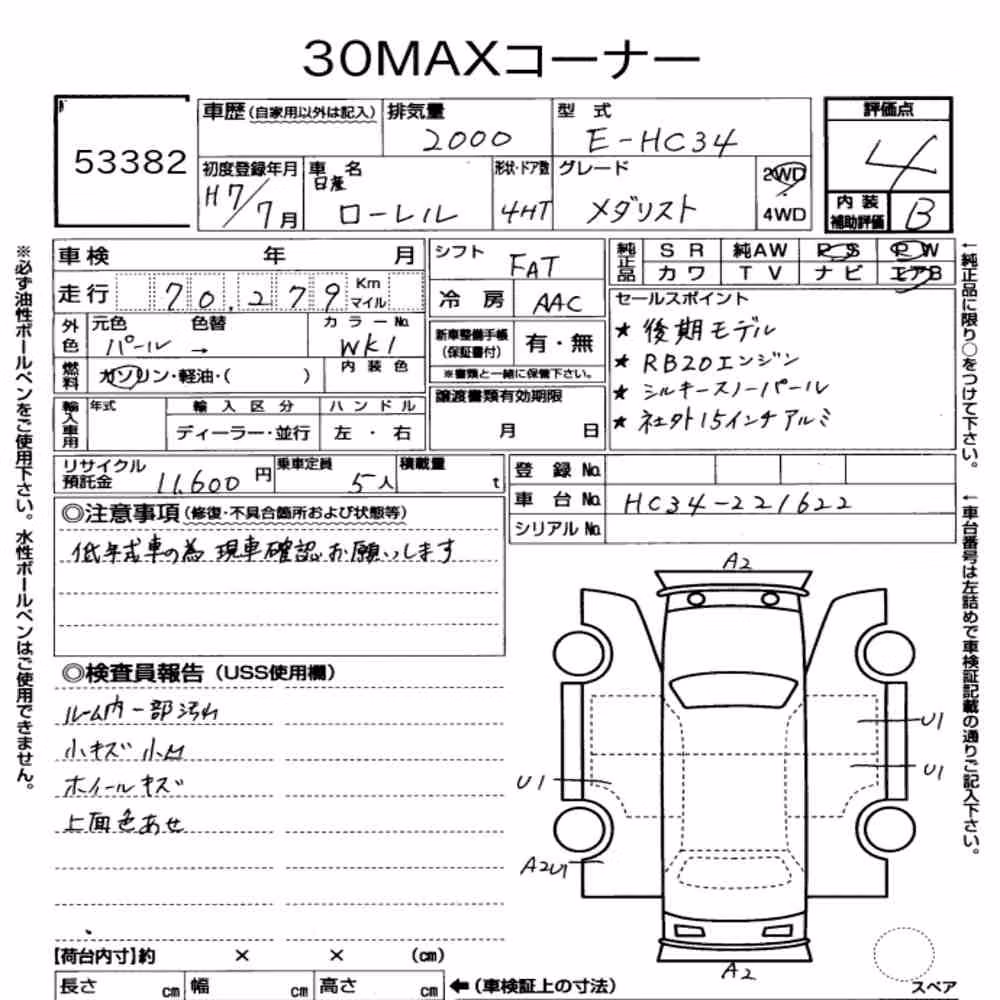 30MAXコーナー
53382
車歴(自家用以外は記入) 排気量 2000 型式 E-HC34
初度登録年月 H7/7月 車名 日産 ローレル 形状・ドア数 4HT グレード メダリスト 2WD 4WD
評価点 4
内装補助評価 B
車検 年 月
走行 70.279 Km マイル
外色 元色 パール → 色替 カラーNo. WK1
燃料 ガソリン・軽油・( ) 内装色
シフト FAT
冷房 AAC
新車整備手帳(保証書付) 有・無
※書類と一緒に保管下さい。
純正品 SR 純AW PS PW
カワ TV ナビ エアB
セールスポイント
★ 後期モデル
★ RB20エンジン
★ シルキースノーパール
★ 社外15インチアルミ
輸入車用 年式 輸入区分 ハンドル
ディーラー・並行 左・右
譲渡書類有効期限
月 日
リサイクル預託金 11,600円 乗車定員 5人 積載量 t
登録No.
車台No. HC34-221622
シリアルNo.
◎注意事項(修復・不具合箇所および状態等)
低年式車の為 現車確認お願いします
◎検査員報告(USS使用欄)
ルーム内一部汚れ
小キズ 小凹
ホイールキズ
上面色あせ
A2
U1
U1
U1
A2U1
A2
スペア
【荷台内寸】約 × × (cm)
長さ cm 幅 cm 高さ cm ←(車検証上の寸法)
※必ず油性ボールペンをご使用下さい。水性ボールペンはご使用できません。
←純正品に限り○をつけて下さい。
←車台番号は左詰めで車検証記載の通りご記入下さい。